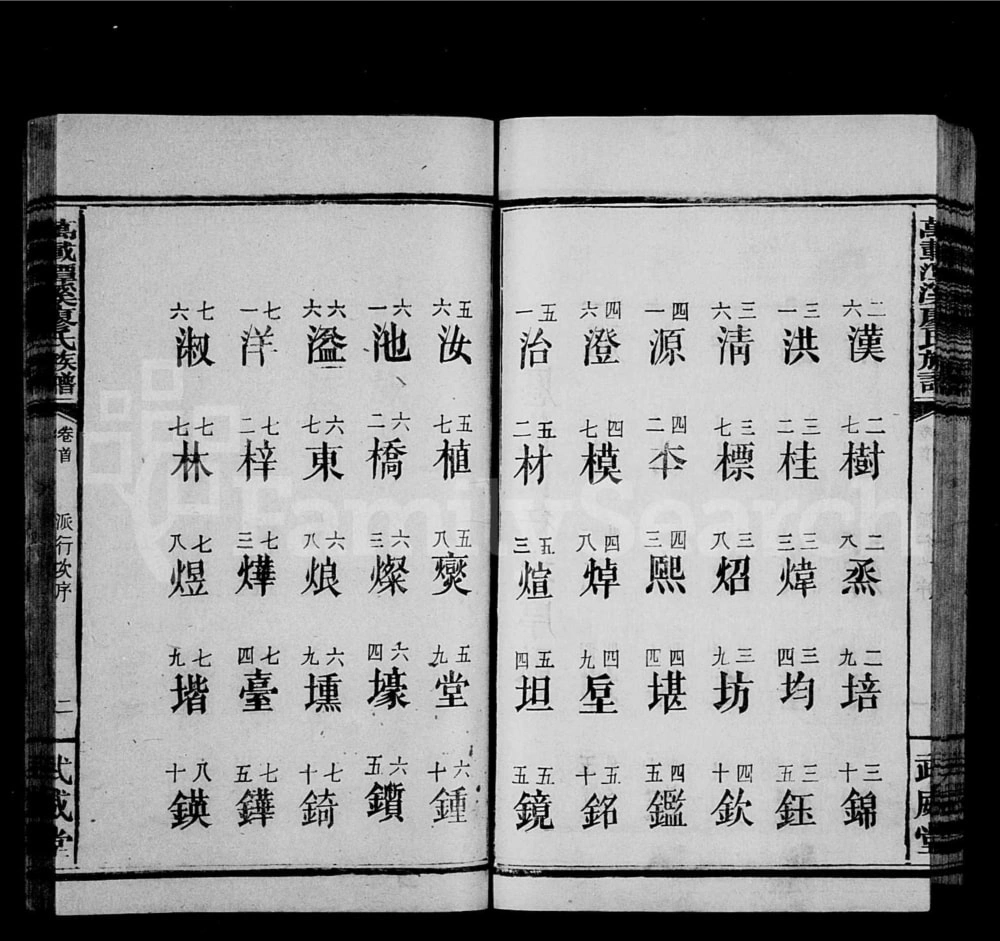 萬載潭溪廖氏族譜
武威堂
二六漢 二七樹 二八烝 二九培 三十錦
三一洪 三二桂 三三煒 三四均 三五鈺
三六清 三七標 三八炤 三九坊 四十欽
四一源 四二夲 四三熙 四四堪 四五鑑
四六澄 四七模 四八焯 四九垕 五十銘
五一治 五二材 五三煊 五四坦 五五鏡
五六汝 五七植 五八爕 五九堂 六十鍾
六一池 六二橋 六三燦 六四壕 六五鑽
六六溢 六七東 六八烺 六九壎 七十錡
七一洋 七二梓 七三燁 七四臺 七五鏵
七六淑 七七林 七八煜 七九堦 八十鍈
萬載潭溪廖氏族譜 卷首 派行次序 二 武威堂
FamilySearch